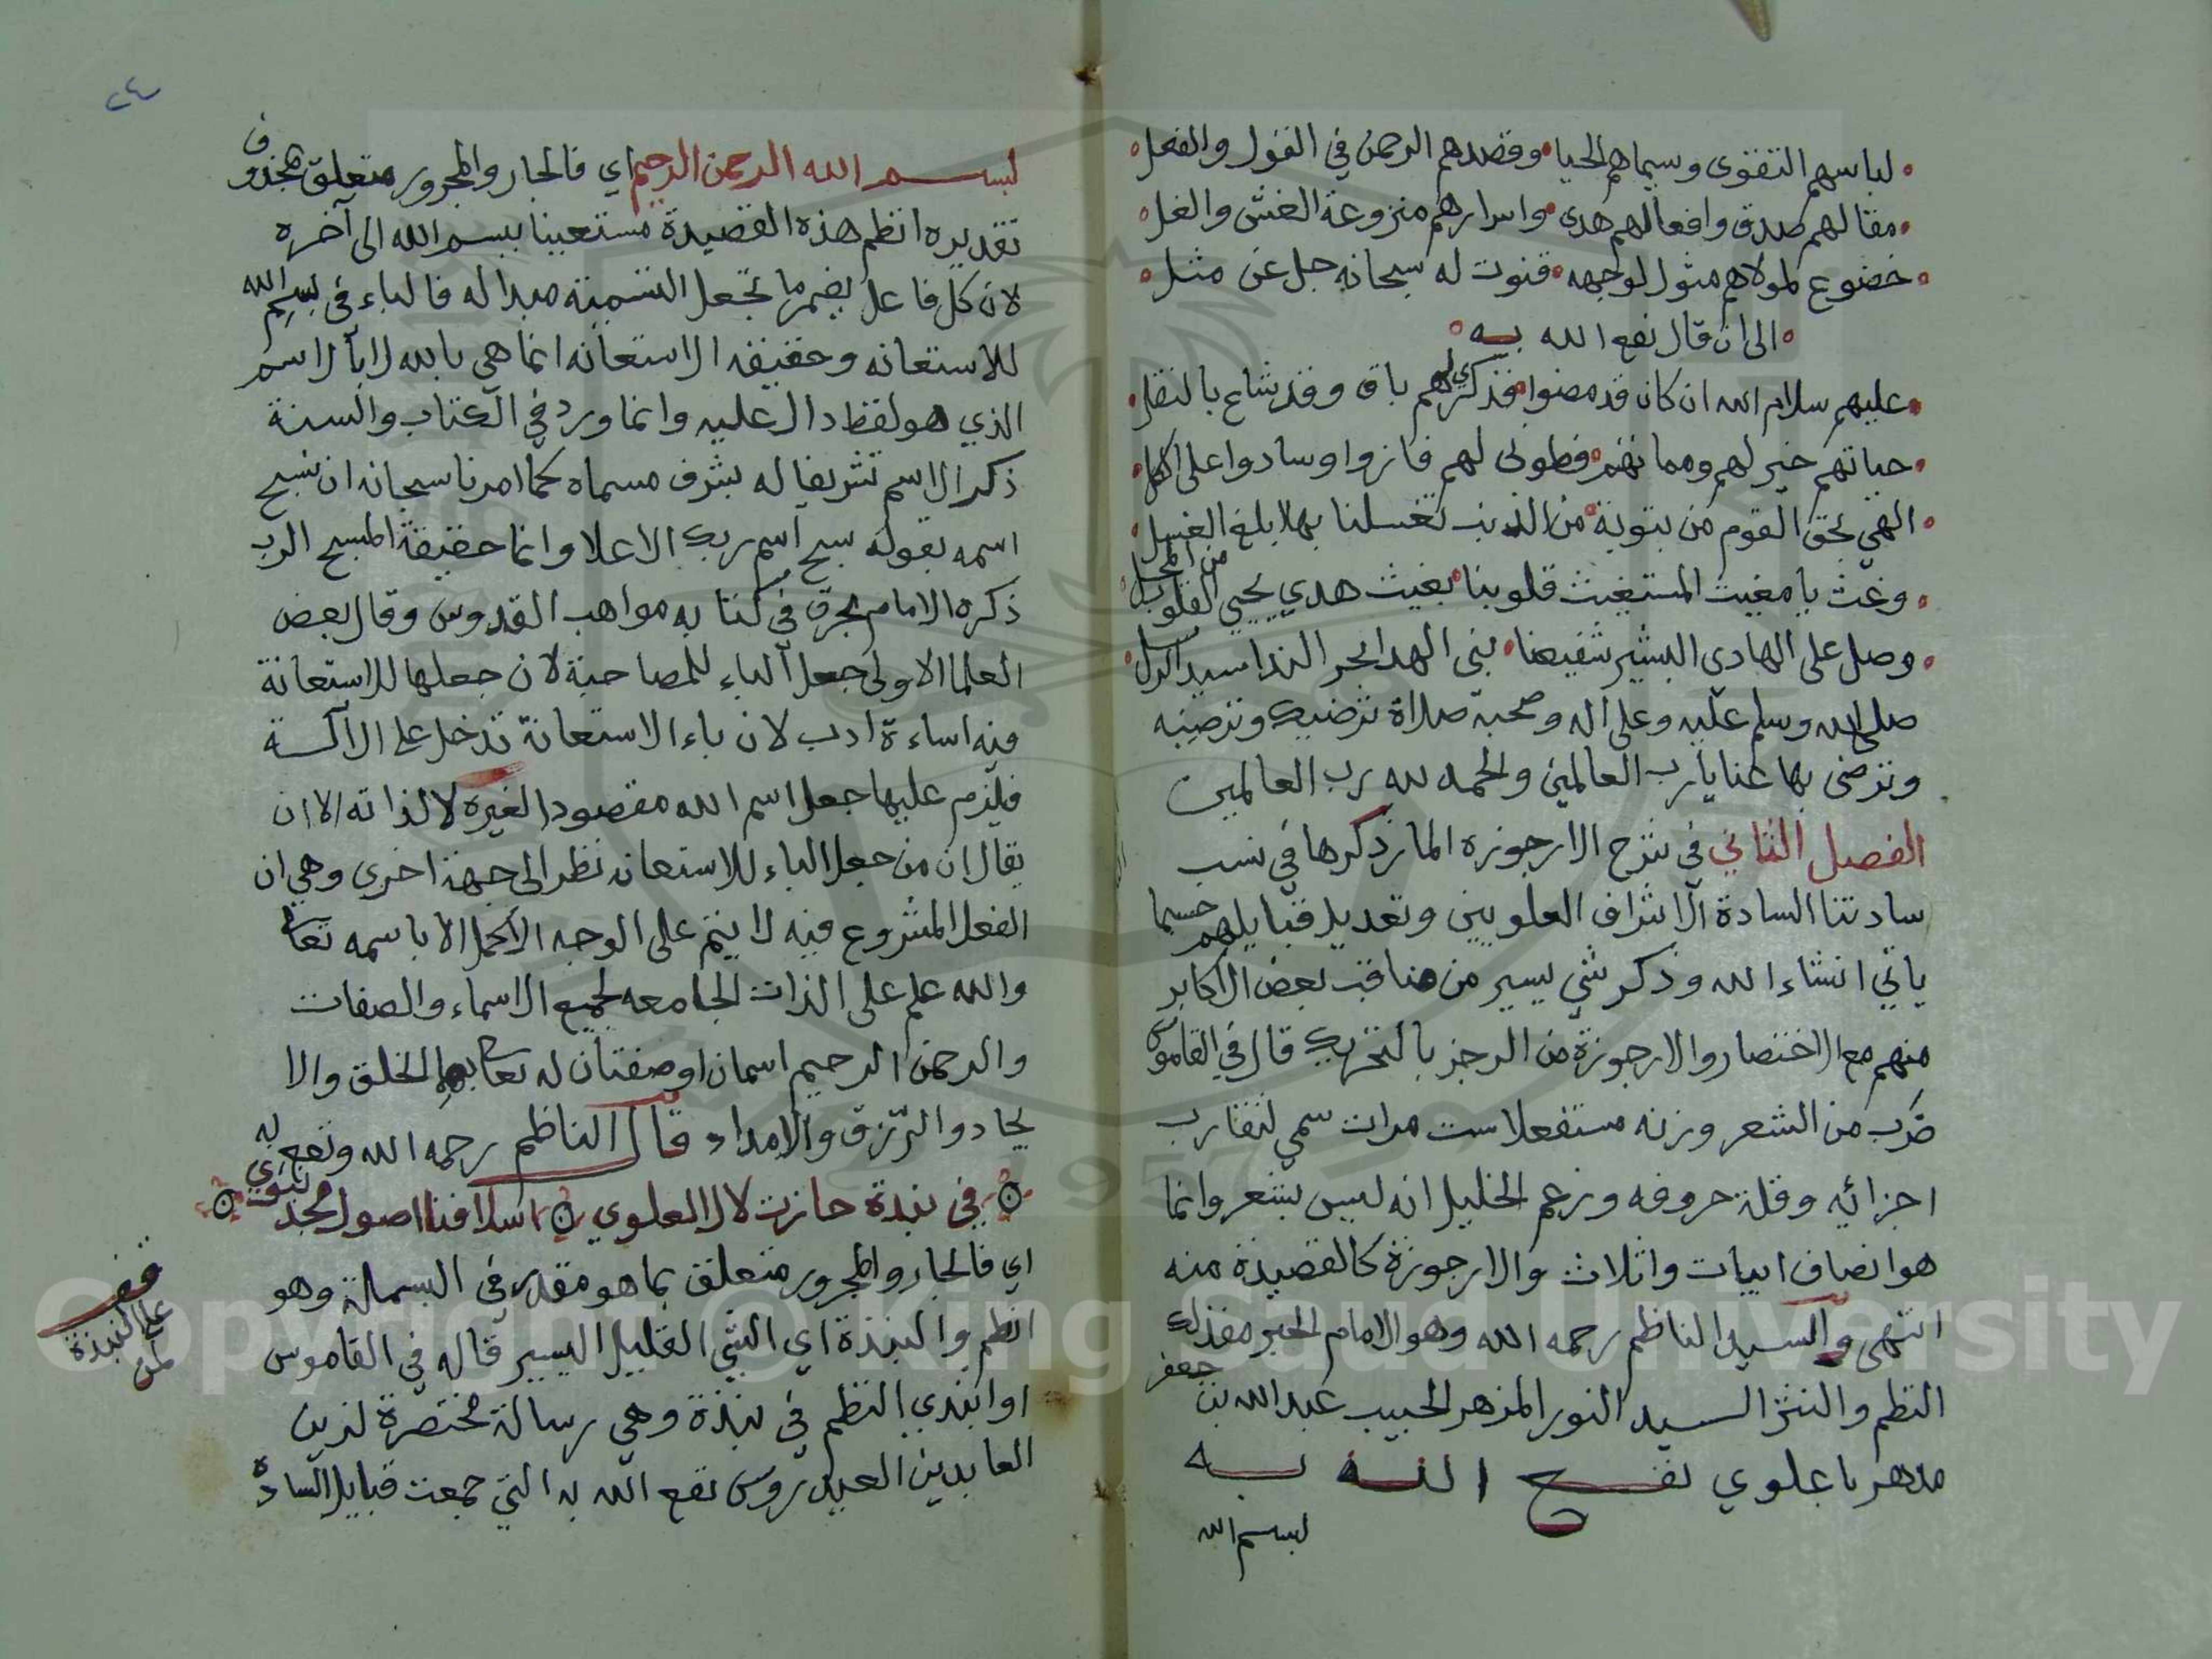 لباسهم التقوى وسيماهم الحيا وقصدهم الرحمن في القول والفعل
مقالهم صدق وافعالهم هدى واسرارهم منزوعة الغش والغل
خضوع لمولاهم مثول لوجهه قنوت له سبحانه جل عن مثل
الى ان قال نفع الله به
عليهم سلام الله ان كان قد مضوا فذكرى لهم باق وقد شاع بالنقل
حياتهم خير لهم ومماتهم فطوبى لهم فازوا وسادوا على الكل
الهي بحق القوم من بتوبة من الذنب تغسلنا بها بلغ الغسل
وغث يا مغيث المستغيث قلوبنا بغيث هدي يحيي القلوب من المحل
وصل على الهادي البشير شفيعنا نبي الهدا بحر الندا سيد الرسل
صلى الله وسلم عليه وعلى اله وصحبه صلاة ترضيك وترضيه
وترضى بها عنا يا رب العالمين والحمد لله رب العالمين
الفصل الثاني في شرح الارجوزه المار ذكرها في نسب
سادتنا السادة الاشراف العلويين وتعديل قبايلهم حسبما
ياتي انشاء الله وذكر شي يسير من مناقب بعض الاكابر
منهم مع الاختصار والارجوزة من الرجز بالتحريك قال في القاموس
ضرب من الشعر وزنه مستفعلا ست مرات سمي لتقارب
اجزائه وقلة حروفه وزعم الخليل انه ليس بشعر وانما
هو انصاف ابيات واثلاث والارجوزة كالقصيدة منه
انتهى والسيد الناظم رحمه الله وهو الامام الحبر مفذلك
النظم والنثر السيد النور المزهر الحبيب عبد الله بن جعفر
مدهر باعلوي نفع الله به
بسم الله
٢٤
بسم الله الرحمن الرحيم اي فالجار والمجرور متعلق بمحذوف
تقديره انظم هذه القصيدة مستعينا ببسم الله الى آخره
لان كل فاعل يضمر ما تجعل التسمية مبدا له فالباء في بسم الله
للاستعانه وحقيقه الاستعانه انما هي بالله لا بالاسم
الذي هو لفظ دال عليه وانما ورد في الكتاب والسنة
ذكر الاسم تشريفا له بشرف مسماه كما امرنا سبحانه ان نسبح
اسمه بقوله سبح اسم ربك الاعلا وانما حقيقة المسبح الرب
ذكره الامام بحرق في كتابه مواهب القدوس وقال بعض
العلما الاولى جعل الباء للمصاحبة لان جعلها للاستعانة
فيه اساءة ادب لان باء الاستعانة تدخل على الآلة
فيلزم عليها جعل اسم الله مقصودا لغيره لا لذاته الا ان
يقال ان من جعل الباء للاستعانه نظر الى جهة اخرى وهي ان
الفعل المشروع فيه لا يتم على الوجه الاكمل الا باسمه تعالى
والله علم على الذات الجامعه لجميع الاسماء والصفات
والرحمن الرحيم اسمان او صفتان له تعالى بهما الخلق والا
يجاد والرزق والامداد قال الناظم رحمه الله ونفع به
في نبذة حازت لال العلوي اسلافنا اصول مجد نبوي
اي فالجار والمجرور متعلق بما هو مقدر في البسملة وهو
انظم والنبذة اي الشي القليل اليسير قاله في القاموس
او ابتدي النظم في نبذة وهي رسالة مختصرة لزين
العابدين العيدروس نفع الله به التي جمعت قبايل السادة
قف
على النبذة
لمن